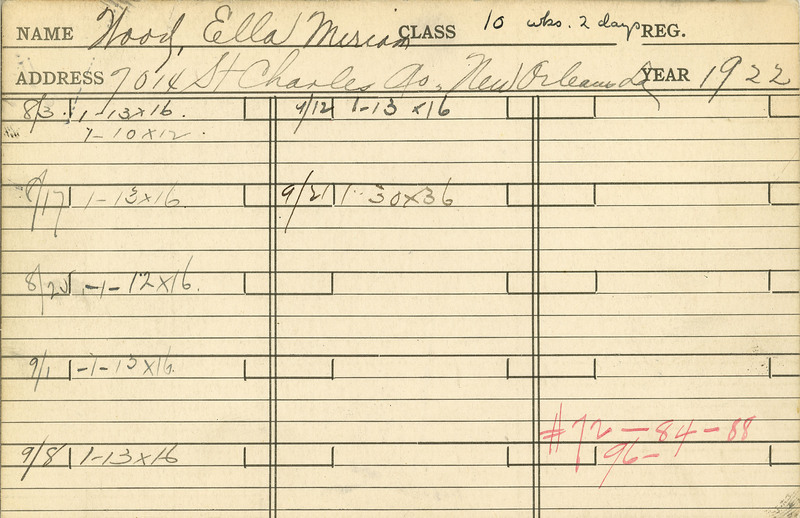 NAME Wood, Ella Miriam CLASS 10 wks. 2 days REG.
ADDRESS 7014 St Charles Av. New Orleans La YEAR 1922
8/3. 1-13x16.
1-10x12.
8/17 1-13x16.
8/25 -1-12x16.
9/1 -1-13x16.
9/8 1-13x16
9/12 1-13x16
9/21 1-30x36
#72-84-88
96-